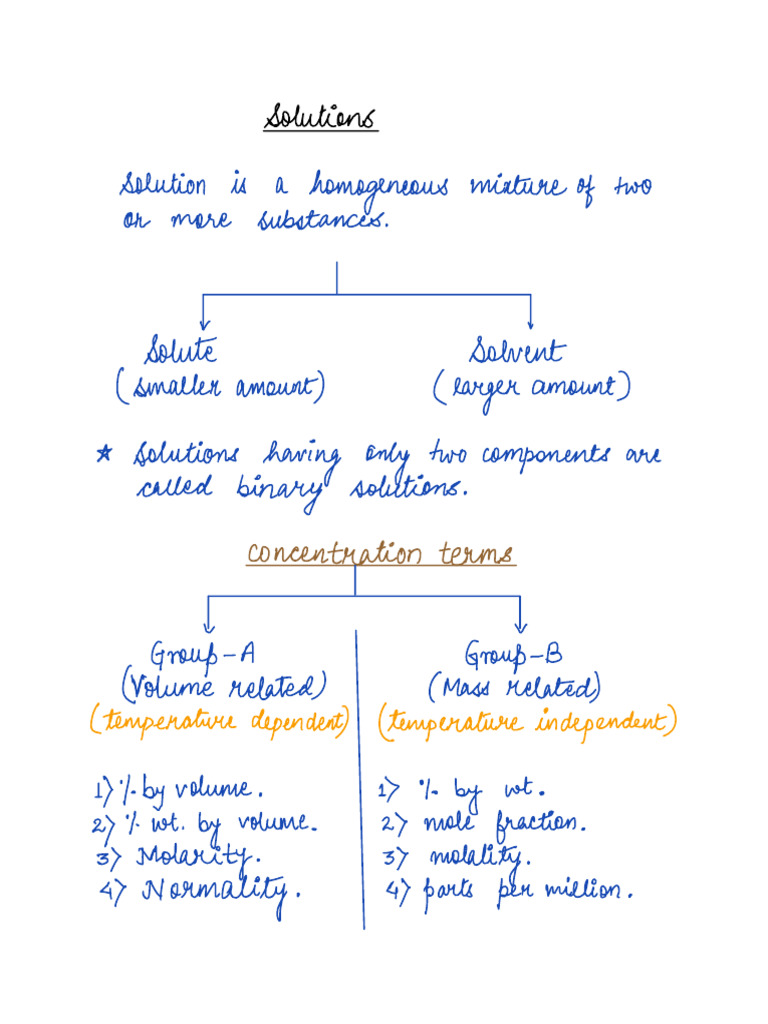 Solutions
Solution is a homogeneous mixture of two
or more substances.
Solute
(smaller amount)
Solvent
(larger amount)
★ Solutions having only two components are
called binary solutions.
Concentration terms
Group-A
(Volume related)
(temperature dependent)
1) % by volume.
2) % wt. by volume.
3) Molarity.
4) Normality.
Group-B
(Mass related)
(temperature independent)
1) % by wt.
2) mole fraction.
3) molality.
4) parts per million.